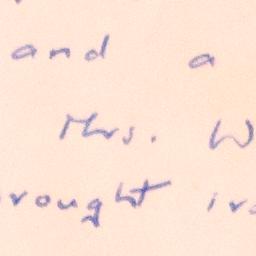 and a
Mrs. W
rought iro